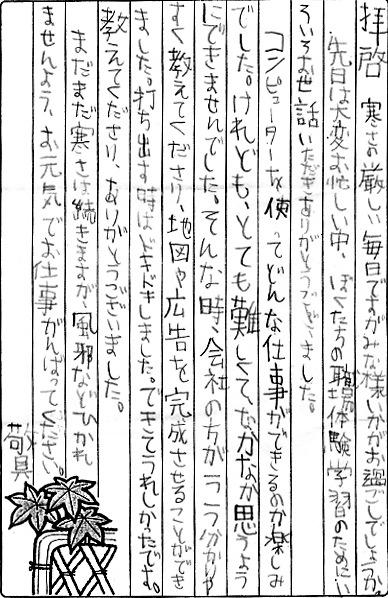 拝啓 寒さの厳しい毎日ですがみな様いかがお過ごしでしょうか。
先日は大変お忙しい中、ぼくたちの職場体験学習のためにい
ろいろお世話いただきありがとうございました。
コンピューターを使ってどんな仕事ができるのか楽しみ
でした。けれども、とても難しくて、なかなか思うよう
にできませんでした。そんな時、会社の方がうら分かりや
すく教えてくださり、地図や広告を完成させることができ
ました。打ち出す時はドキドキしました。できてうれしかたです。
教えてくださり、ありがとうございました。
まだまだ寒さは続きますが、風邪などひかれ
ませんよう、お元気でお仕事がんばってください。
敬具